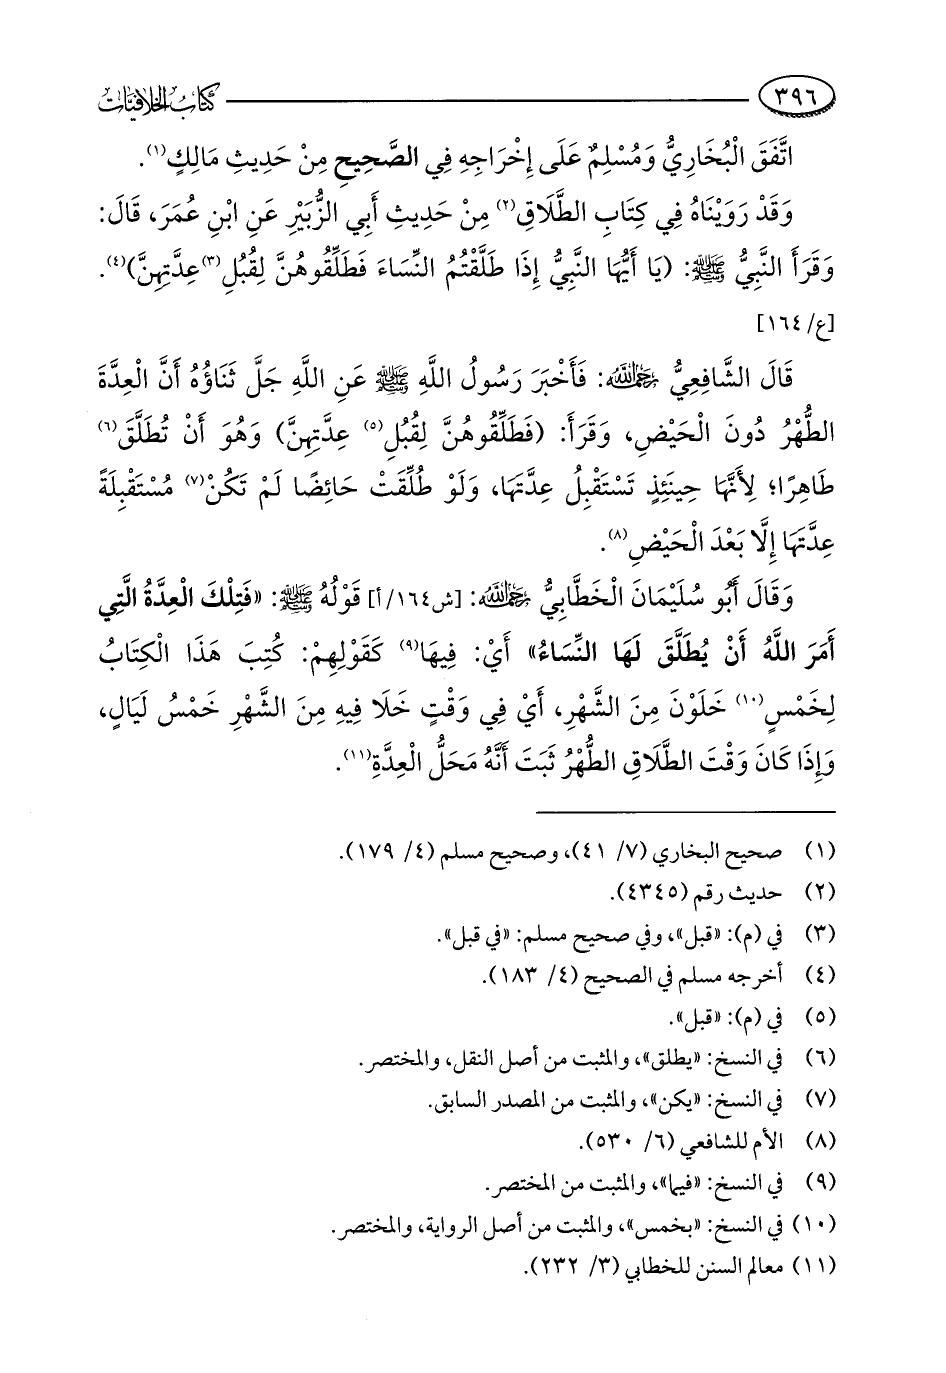 ٣٩٦ كتاب الخلافيات
اتَّفَقَ الْبُخَارِيُّ وَمُسْلِمٌ عَلَى إِخْرَاجِهِ فِي الصَّحِيحِ مِنْ حَدِيثِ مَالِكٍ(١).
وَقَدْ رَوَيْنَاهُ فِي كِتَابِ الطَّلَاقِ(٢) مِنْ حَدِيثِ أَبِي الزُّبَيْرِ عَنِ ابْنِ عُمَرَ، قَالَ:
وَقَرَأَ النَّبِيُّ ﷺ: (يَا أَيُّهَا النَّبِيُّ إِذَا طَلَّقْتُمُ النِّسَاءَ فَطَلِّقُوهُنَّ لِقُبُلِ(٣) عِدَّتِهِنَّ)(٤).
[ع/ ١٦٤]
قَالَ الشَّافِعِيُّ رَحِمَهُ اللَّهُ: فَأَخْبَرَ رَسُولُ اللَّهِ ﷺ عَنِ اللَّهِ جَلَّ ثَنَاؤُهُ أَنَّ الْعِدَّةَ
الطُّهْرُ دُونَ الْحَيْضِ، وَقَرَأَ: (فَطَلِّقُوهُنَّ لِقُبُلِ(٥) عِدَّتِهِنَّ) وَهُوَ أَنْ تُطَلَّقَ(٦)
طَاهِرًا؛ لِأَنَّهَا حِينَئِذٍ تَسْتَقْبِلُ عِدَّتَهَا، وَلَوْ طُلِّقَتْ حَائِضًا لَمْ تَكُنْ(٧) مُسْتَقْبِلَةً
عِدَّتَهَا إِلَّا بَعْدَ الْحَيْضِ(٨).
وَقَالَ أَبُو سُلَيْمَانَ الْخَطَّابِيُّ رَحِمَهُ اللَّهُ: [ش١٦٤/ أ] قَوْلُهُ ﷺ: «فَتِلْكَ الْعِدَّةُ الَّتِي
أَمَرَ اللَّهُ أَنْ يُطَلَّقَ لَهَا النِّسَاءُ» أَيْ: فِيهَا(٩) كَقَوْلِهِمْ: كُتِبَ هَذَا الْكِتَابُ
لِخَمْسٍ(١٠) خَلَوْنَ مِنَ الشَّهْرِ، أَيْ فِي وَقْتٍ خَلَا فِيهِ مِنَ الشَّهْرِ خَمْسُ لَيَالٍ،
وَإِذَا كَانَ وَقْتَ الطَّلَاقِ الطُّهْرُ ثَبَتَ أَنَّهُ مَحَلُّ الْعِدَّةِ(١١).
(١) صحيح البخاري (٧/ ٤١)، وصحيح مسلم (٤/ ١٧٩).
(٢) حديث رقم (٤٣٤٥).
(٣) في (م): «قبل»، وفي صحيح مسلم: «في قبل».
(٤) أخرجه مسلم في الصحيح (٤/ ١٨٣).
(٥) في (م): «قبل».
(٦) في النسخ: «يطلق»، والمثبت من أصل النقل، والمختصر.
(٧) في النسخ: «يكن»، والمثبت من المصدر السابق.
(٨) الأم للشافعي (٦/ ٥٣٠).
(٩) في النسخ: «فيما»، والمثبت من المختصر.
(١٠) في النسخ: «بخمس»، والمثبت من أصل الرواية، والمختصر.
(١١) معالم السنن للخطابي (٣/ ٢٣٢).